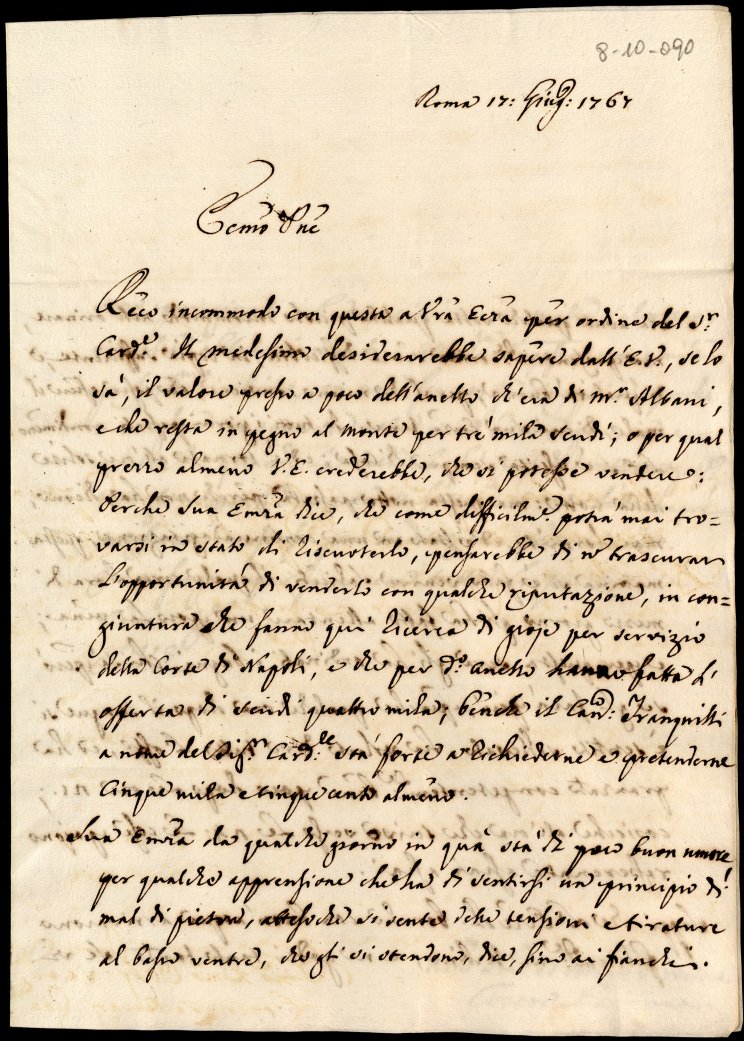 8-10-090
Roma 17: Giug: 1767
Eccmo Pne
Reco incommodo con questa a Vrã Ecc̃a per ordine del Sr
Carde. Il medesimo desiderarebbe sapere dall'E.V., se lo
sà, il valore presso a poco dell'anello ch'era di Mr. Albani,
e che resta in pegno al Monte per trè mila scudi; o per qual
prezzo almeno V.E. crederebbe, che si potesse vendere:
Perche Sua Emza dice, che come difficilme. potrà mai tro=
varsi in stato di riscuoterlo, pensarebbe di nõ trascurar
l'opportunità di venderlo con qualche riputazione, in con=
giuntura che fanno quì ricerca di gioje per servizio
della Corte di Napoli, e che per do. anello hanno fatta l'
offerta di scudi quattro mila; benche il Cand: Tranquilli
a nome del Sigr. Cardle stà forte a richiederne e pretenderne
Cinque mila e cinque cento almeno.
Sua Emza da qualche giorno in quà stà di poco buon umore
per qualche apprensione che ha di sentirsi un principio di
mal di pietra, attesoche si sente che tensioni e tirature
al basso ventre, che gli si stendono, dice, sino ai fianchi.